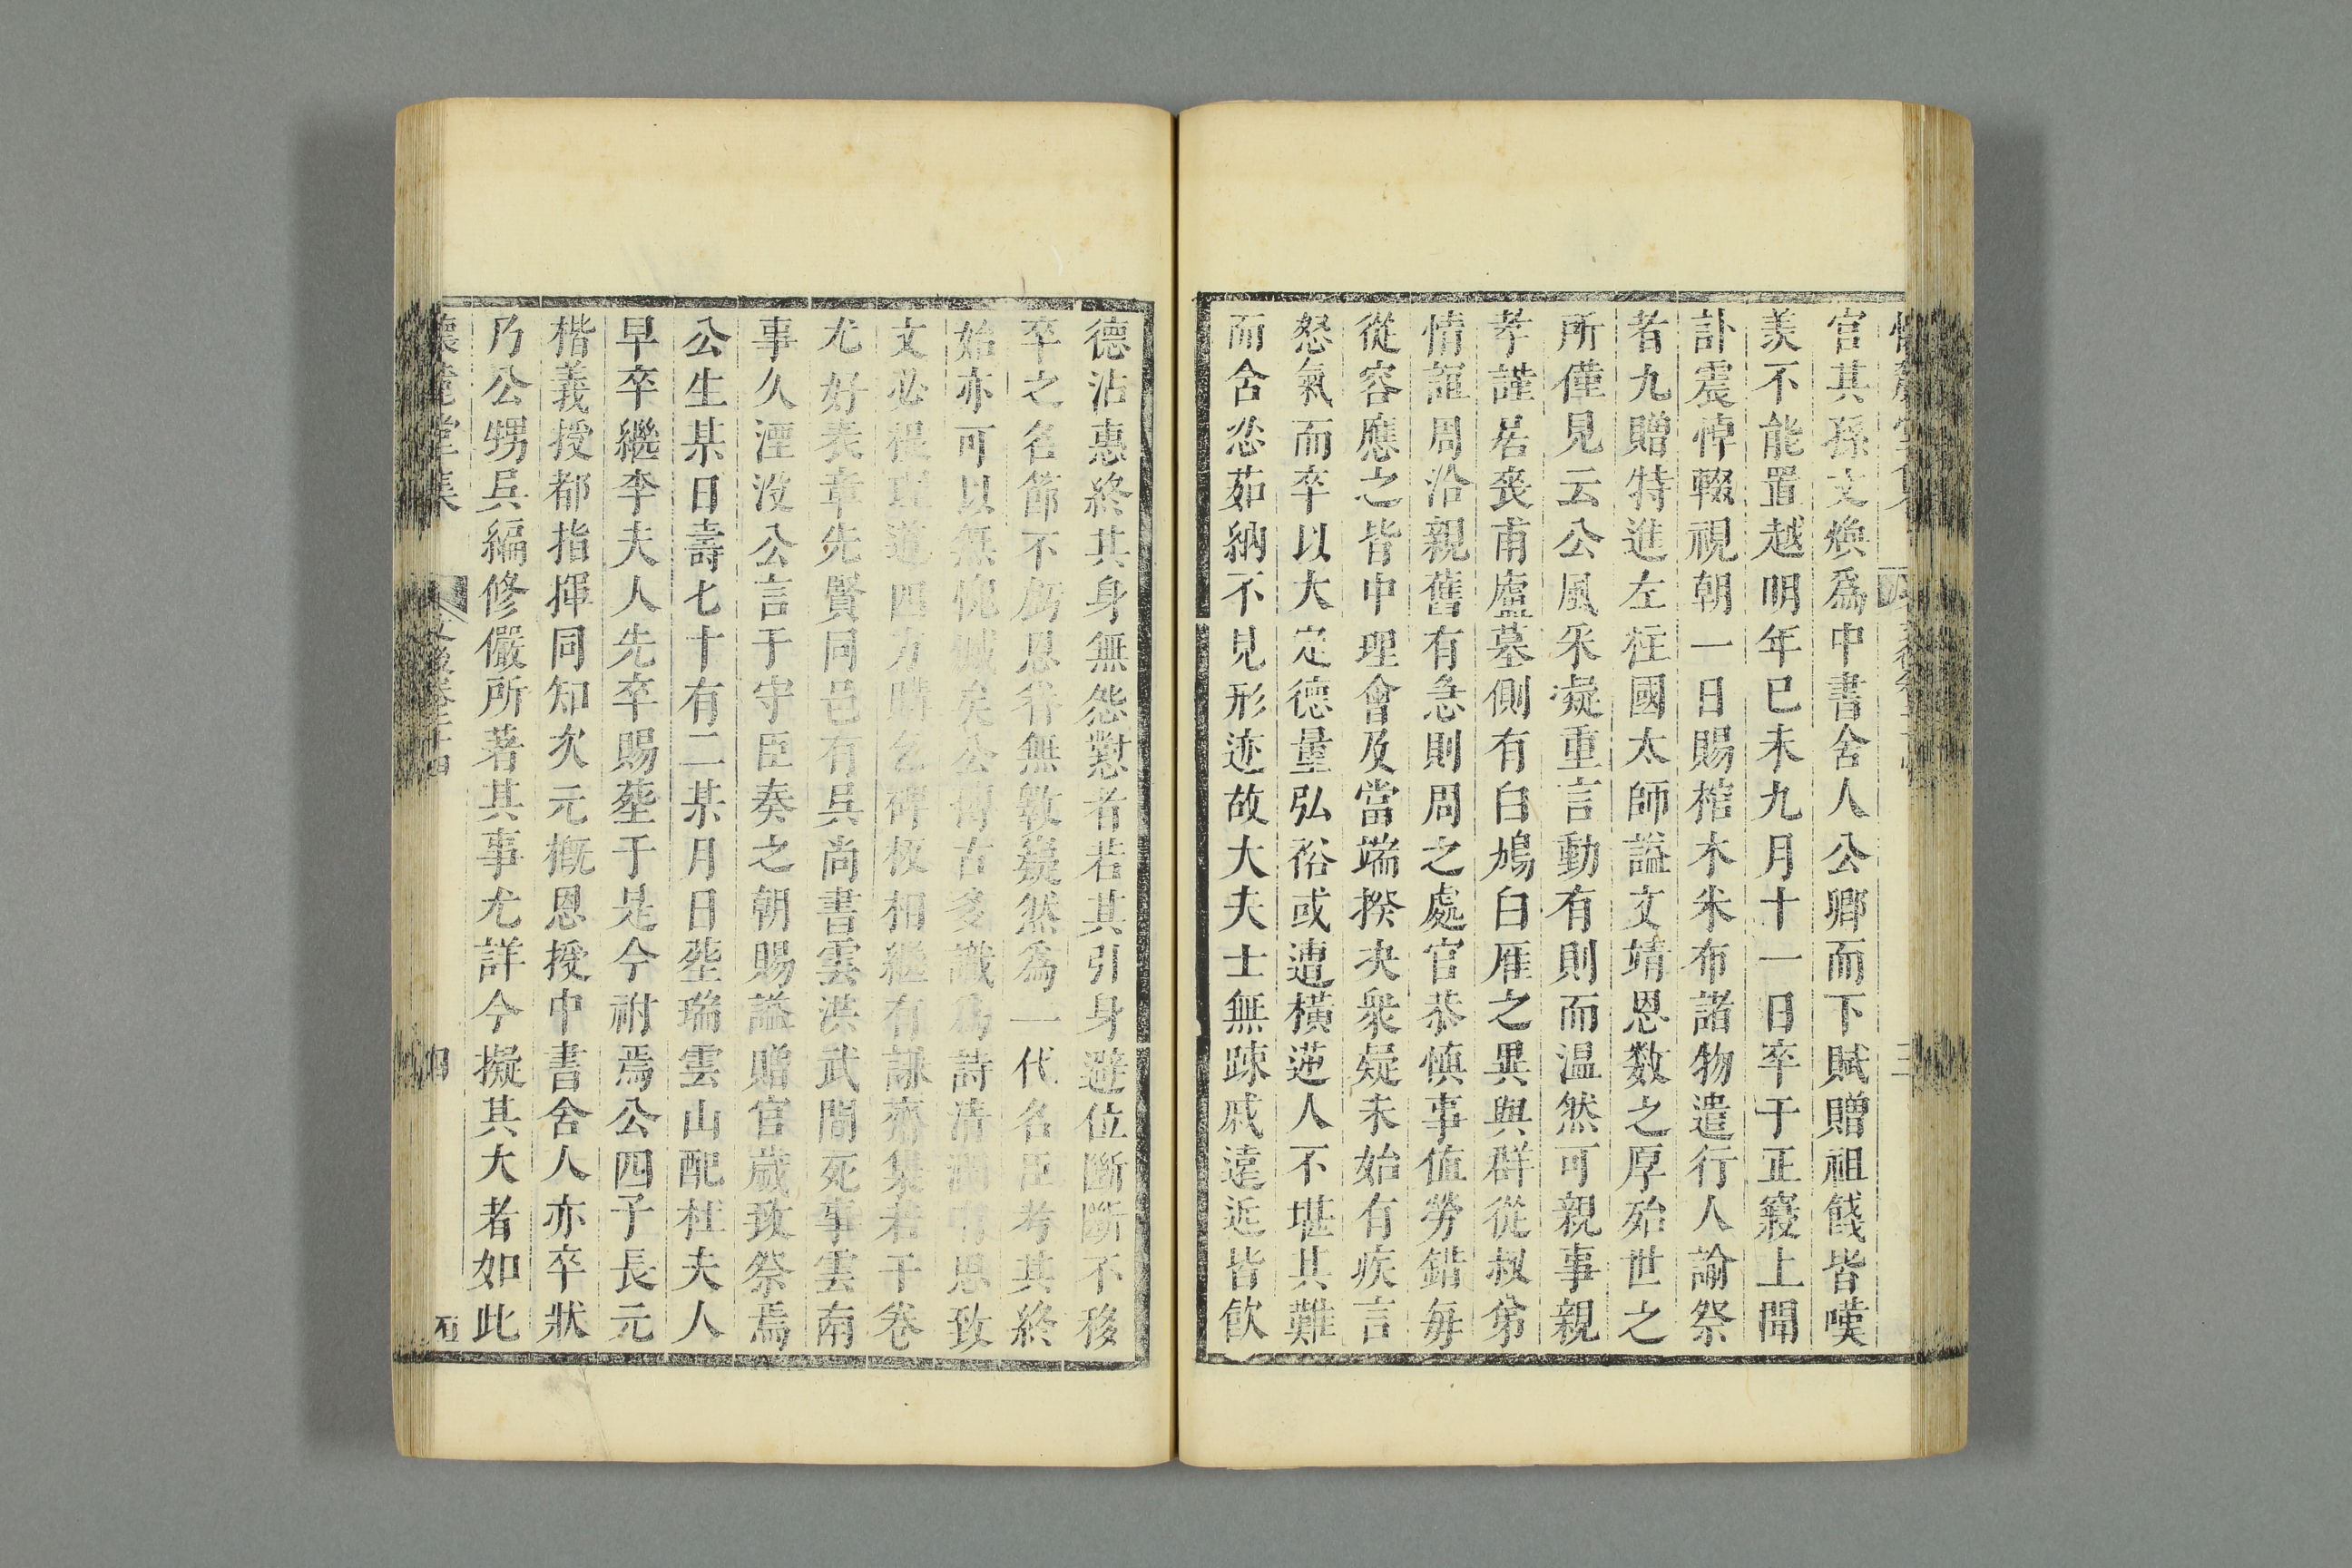 官其孫文煥爲中書舍人公卿而下賦贈祖餞皆嘆
羙不能置越明年已未九月十一日卒于正寢上聞
訃震悼輟視朝一日賜棺木米布諸物遣行人諭祭
者九贈特進左柱國太師謚文靖恩数之厚殆世之
所僅見云公風采凝重言動有則而温然可親事親
孝謹居喪甫廬墓側有白鳩白雁之異與群從叔弟
情誼周洽親舊有急則周之處官恭慎事值勞錯每
從容應之皆中理會及當端揆决衆疑未始有疾言
怒氣而卒以大定德量弘裕或遭橫逆人不堪其難
而舍忿茹納不見形迹故大夫士無踈戚遠近皆飲
德沾惠終其身無怨懟者若其引身避位斷斷不移
卒之名節不虧恩眷無斁嶷然爲一代名臣考其終
始亦可以無愧媿矣公博古多識爲詩清潤有思致
文必根理道四方時乞碑板相繼有謙齋集若干卷
尤好表章先賢同邑有吳尚書雲洪武間死事雲南
事久湮没公言于守臣奏之朝賜謚贈官歲致祭焉
公生某日壽七十有二某月日塟瑞雲山配杜夫人
早卒繼李夫人先卒賜塟于是今祔焉公四子長元
楷義授都指揮同知次元概恩授中書舍人亦卒狀
乃公甥吳編修儼所著其事尤詳今擬其大者如此
懷麓堂集
文後卷二十四
四
石